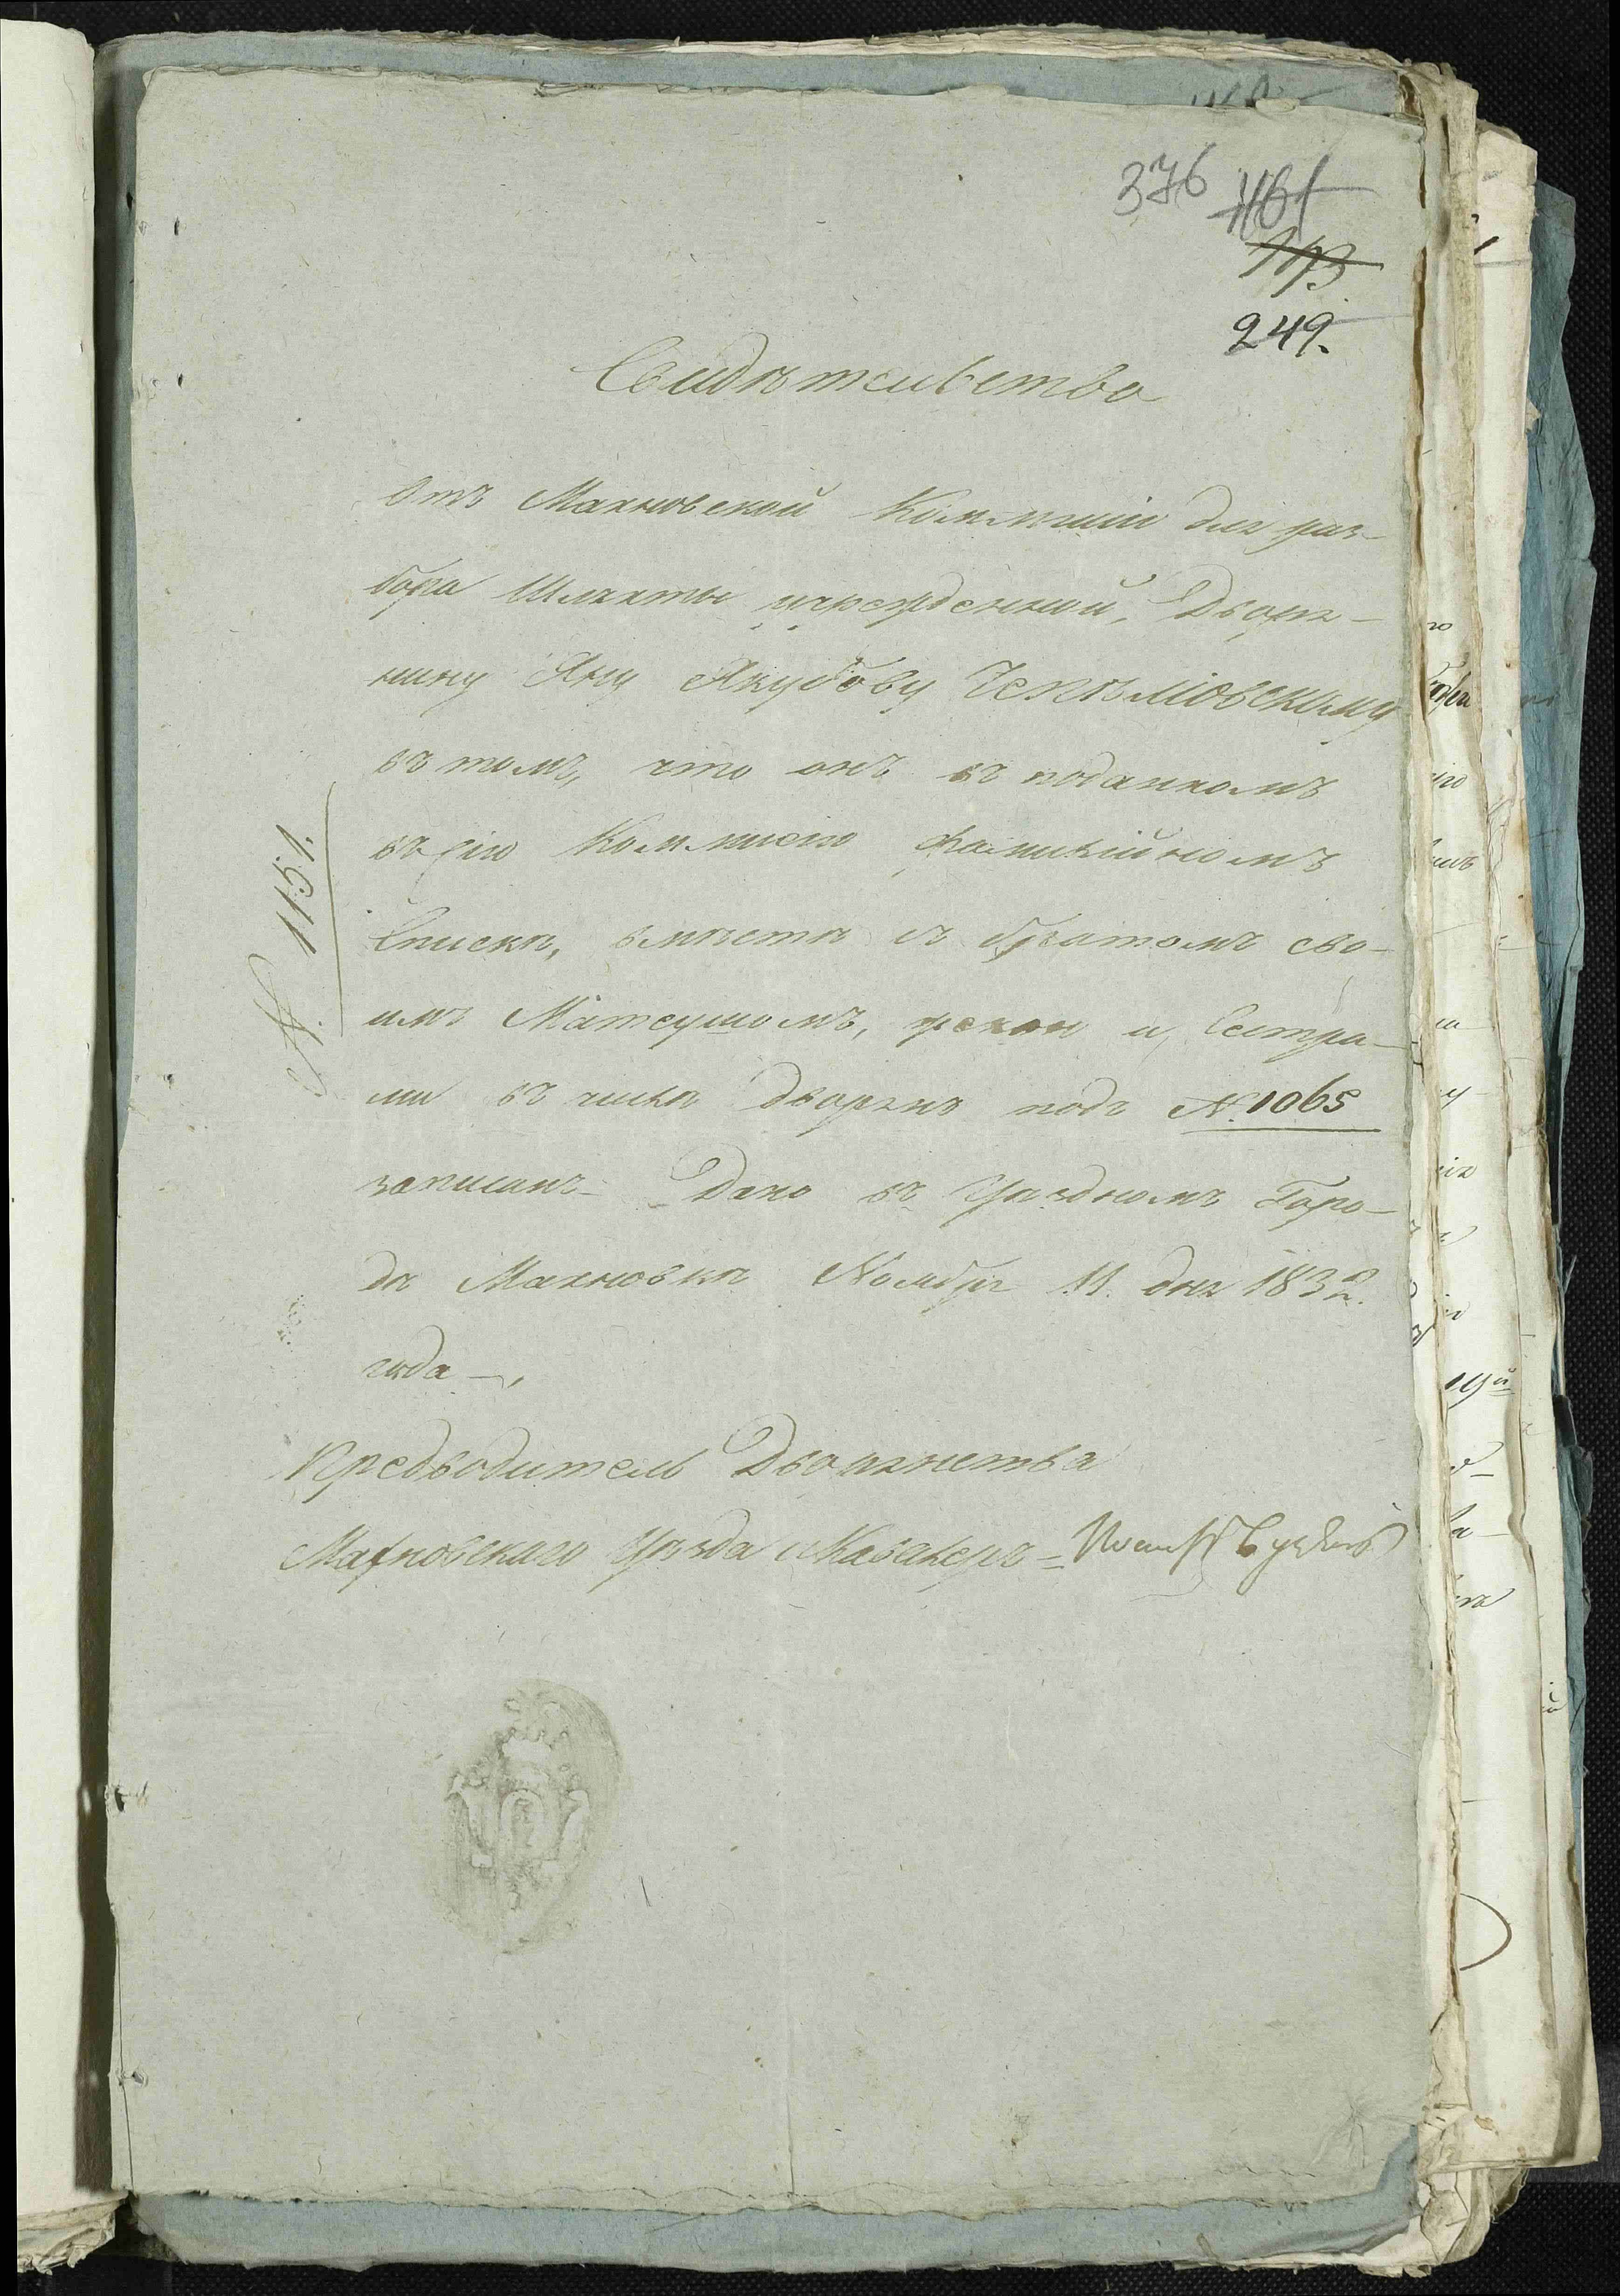 376 461
249.
Свидѣтельство
Отъ Махновской Коммисіи для раз-
бора Шляхты учрежденной, Дворя-
нину Яну Якубову
въ томъ, что онъ въ поданномъ
въ сію Коммисію Фамилійномъ
Спискѣ, вмѣстѣ съ братомъ сво-
имъ Матеушомъ, женою и Сестра-
ми въ числѣ дворянъ подъ N. 1065
записанъ – Дано въ Уѣздномъ Горо-
дѣ Махновкѣ Ноября 11. дня 1832.
года –,
Предводитель Дворянства
Махновскаго Уѣзда и Кавалеръ –
№ 1151.